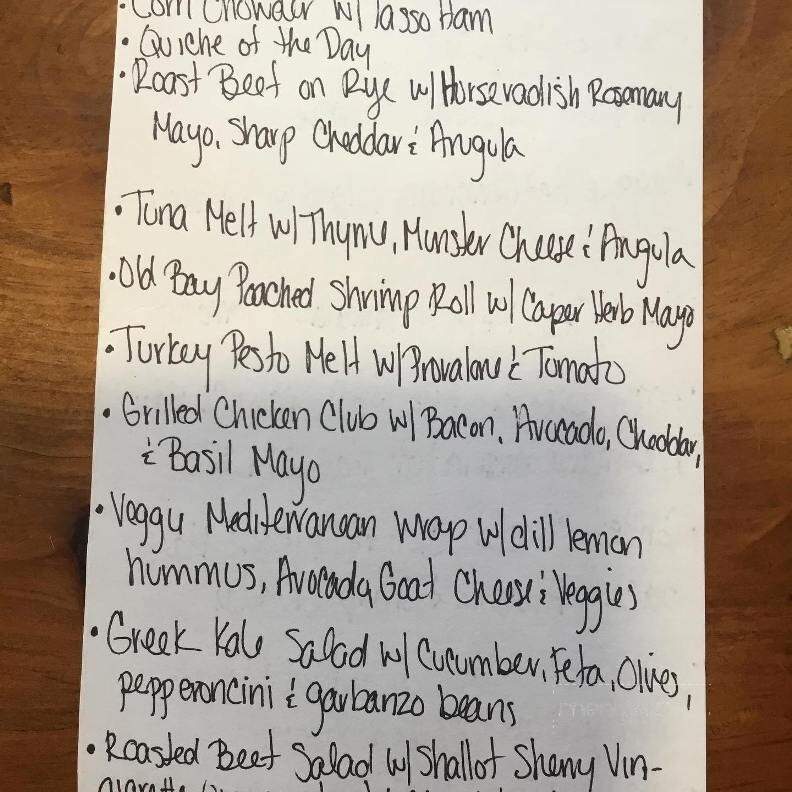 • Corn Chowder w/ Tasso Ham
• Quiche of the Day
• Roast Beef on Rye w/ Horseradish Rosemary
Mayo, Sharp Cheddar & Arugula
• Tuna Melt w/ Thyme, Munster Cheese & Arugula
• Old Bay Poached Shrimp Roll w/ Caper Herb Mayo
• Turkey Pesto Melt w/ Provalone & Tomato
• Grilled Chicken Club w/ Bacon, Avocado, Cheddar,
& Basil Mayo
• Veggy Mediterranean Wrap w/ dill lemon
hummus, Avocado, Goat Cheese & Veggies
• Greek Kale Salad w/ Cucumber, Feta, Olives,
pepperoncini & garbanzo beans
• Roasted Beet Salad w/ Shallot Sherry Vin-
aigrette